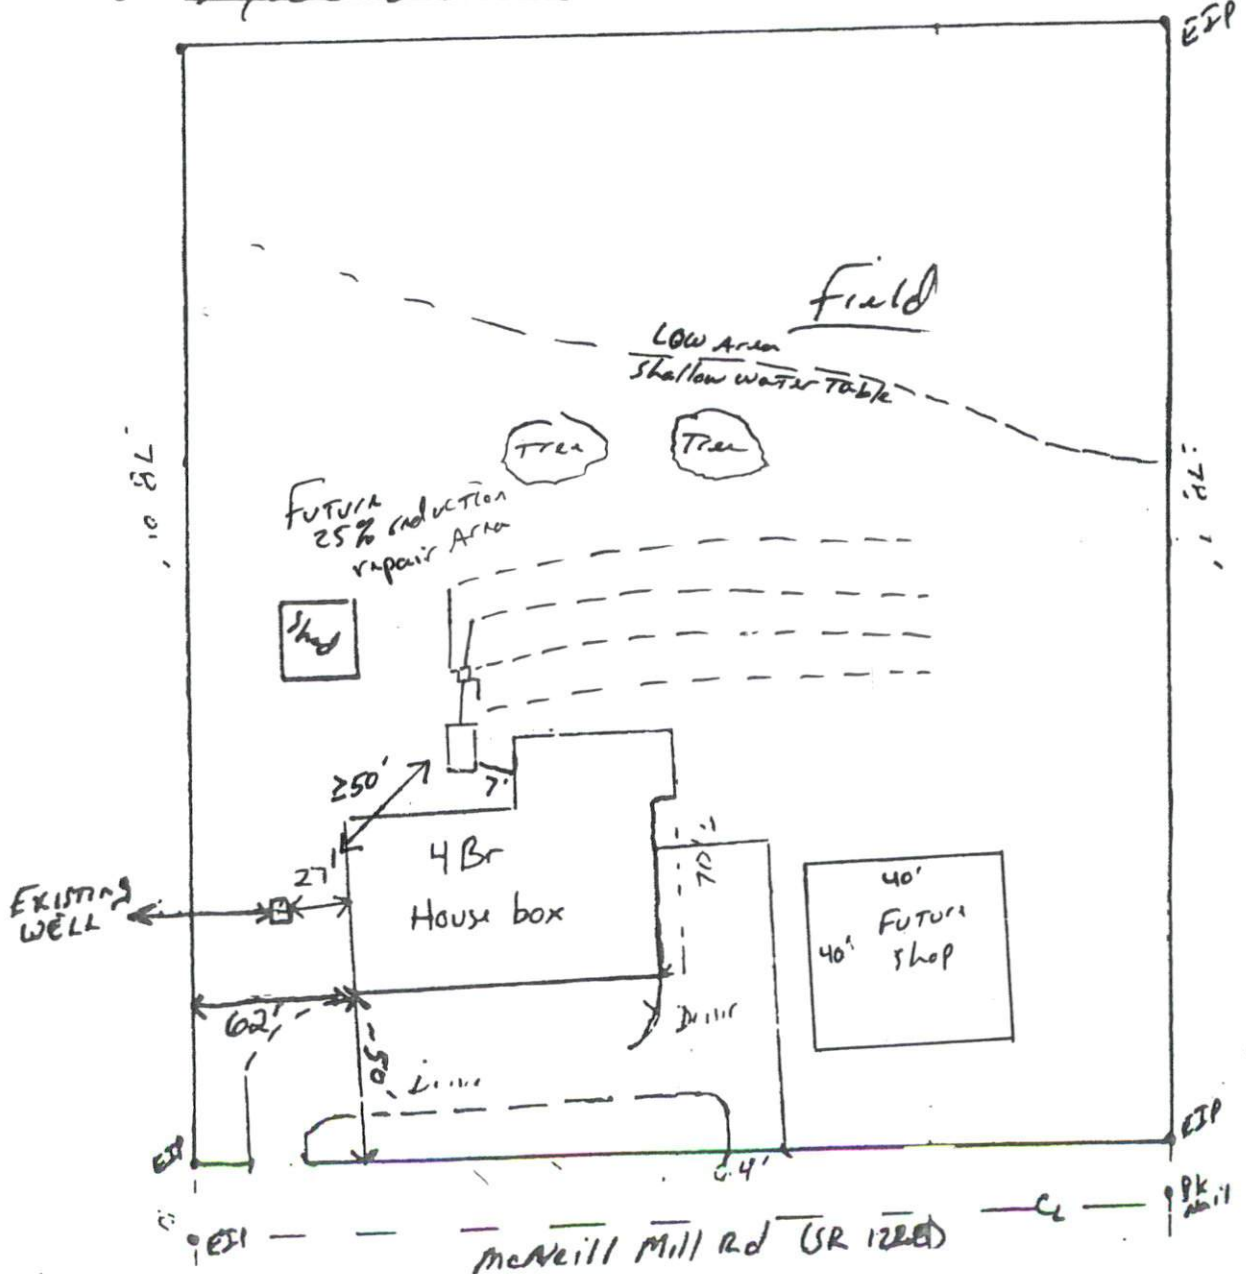 EIP
Field
LOW Area
Shallow water Table
Tree
Tree
Future
25% reduction
repair Area
Shed
≥50'
7'
4 Br
House box
27'
EXISTING
WELL
70'
40'
40'
Future
shop
62'
50'
EIP
EIP
PK
Nail
EIP
CL
McNeill Mill Rd (SR